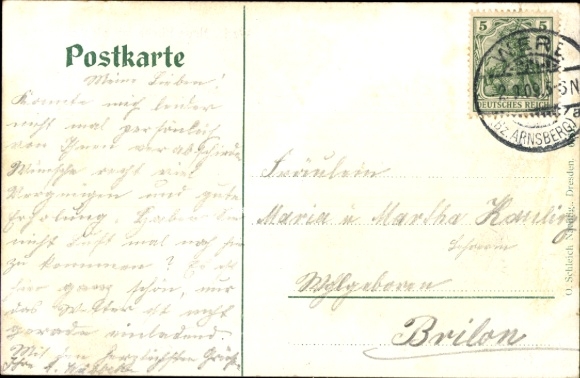 Postkarte
Meine Lieben!
Konnte mich leider
nicht mal persönlich
von Ihnen verabschieden
Wünsche recht viel
Vergnügen und gute
Erholung. Haben Sie
nicht Lust mal nach hier
zu kommen? Es ist
hier ganz schön, nur
das Wetter ist nicht
gerade einladend.
Mit den herzlichsten Grüßen
5 5
DEUTSCHES REICH
WERL
5-6N
(BZ. ARNSBERG)
Fräulein
Maria u Martha
Lehrerin
Wohlgeboren
Brilon
O. Schleich Nachflg., Dresden.